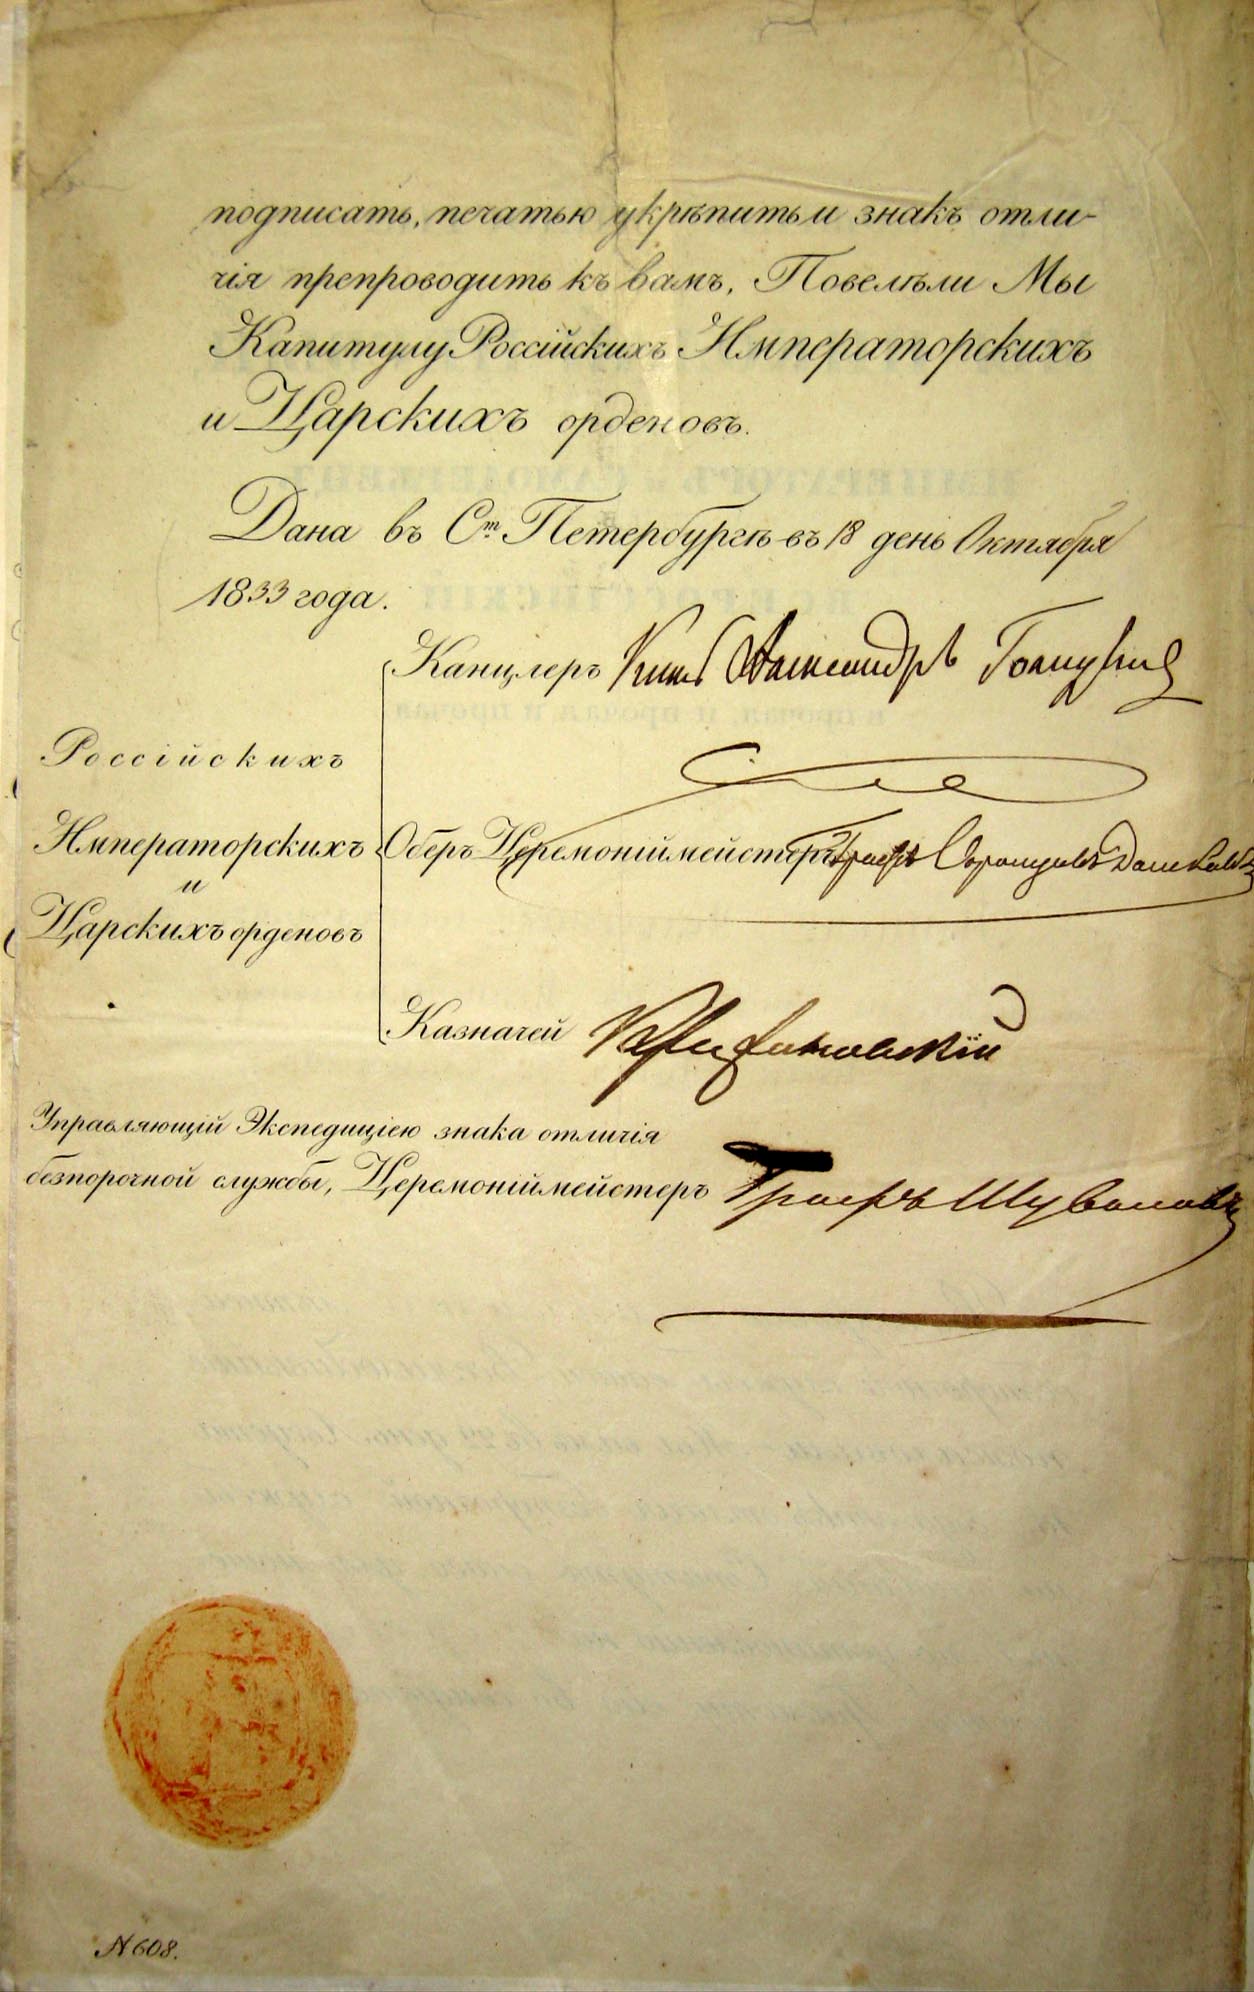 подписать, печатью укрѣпить и знакъ отли-
чія препроводить къ вамъ, Повелѣли Мы
Капитулу Россійскихъ Императорскихъ
и Царскихъ орденовъ.
Дана въ Ст. Петербургѣ въ 18 день Октября
1833 года.
Канцлеръ Князь Александръ Голицынъ
Россійскихъ
Императорскихъ
и
Царскихъ орденовъ
Оберъ Церемоніймейстеръ Графъ Воронцовъ Дашковъ
Казначей
Управляющій Экспедиціею знака отличія
безпорочной службы, Церемоніймейстеръ Графъ Шуваловъ
N 608.